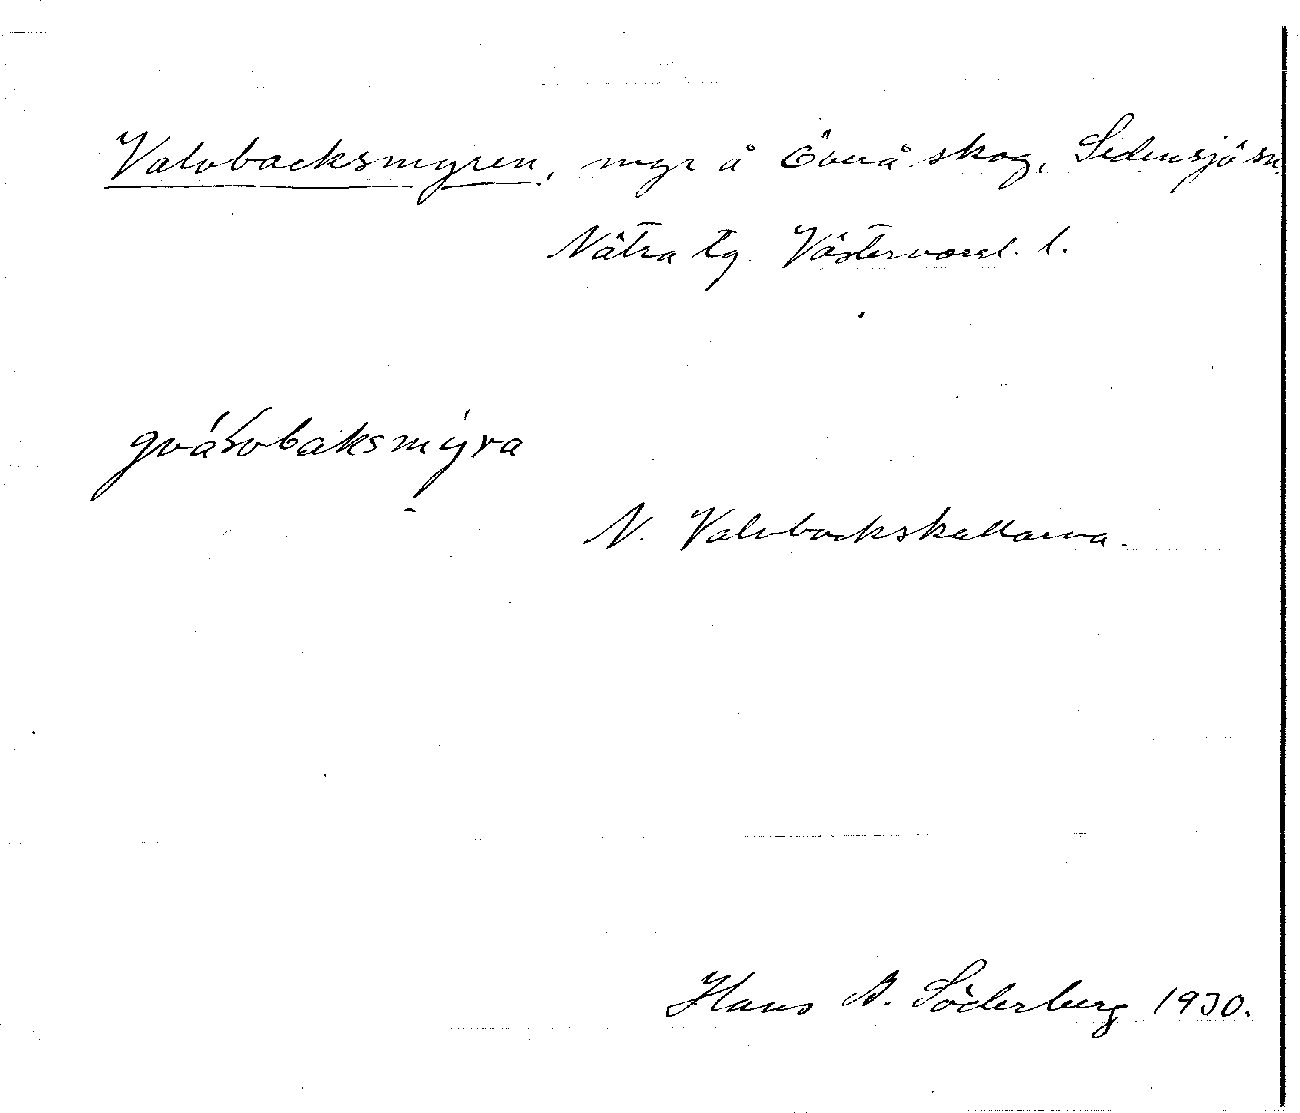 Valvbacksmyren, myr å Överå skog, Sidensjö sn.
Nätra tg. Västernorrl. l.
N. Valvbackskallarna.
Hans B. Söderberg 1930.